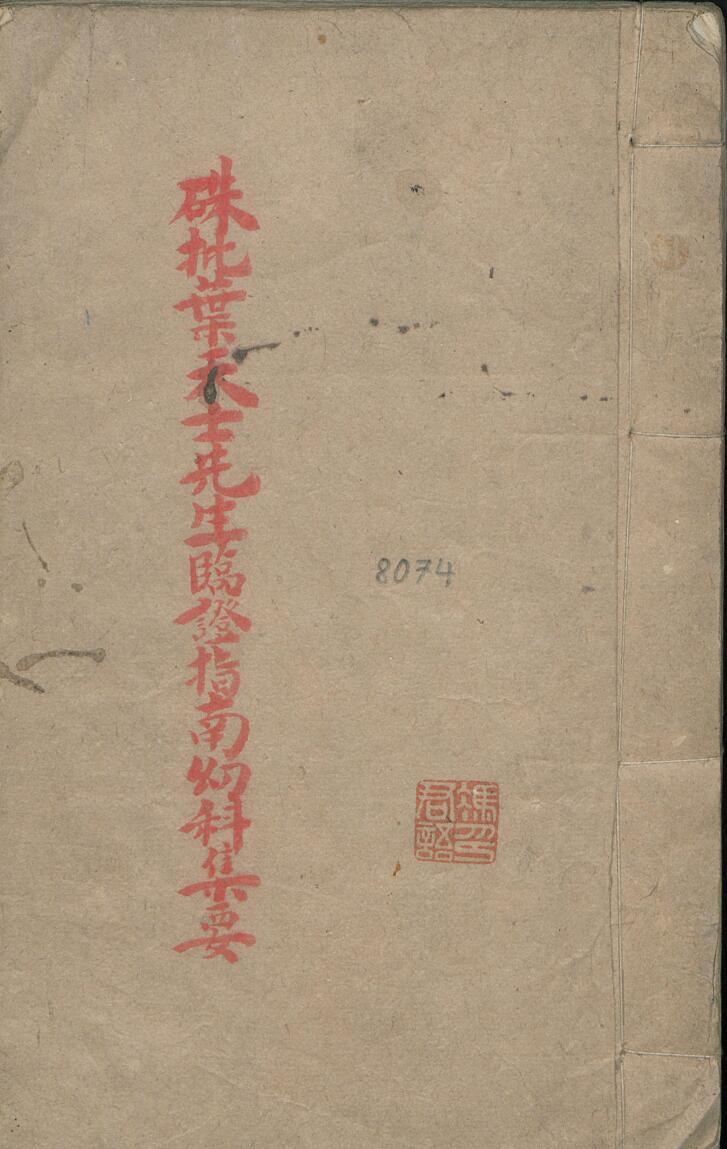 硃批葉天士先生臨證指南幼科集要
8074
馮印
君